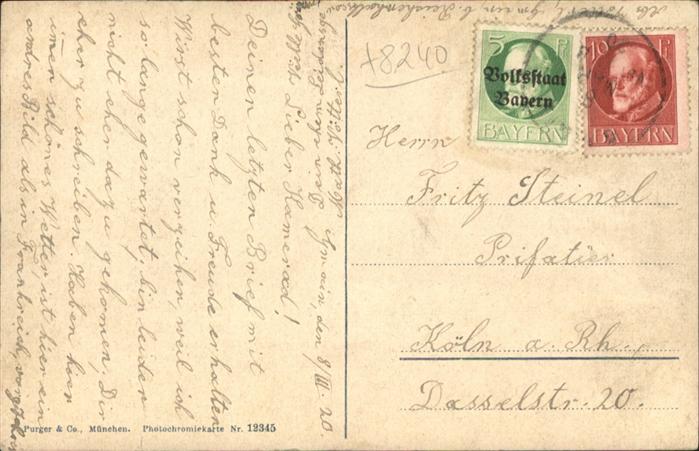 Ilmain den 8/III. 20.
Lieber Kamerad!
Deinen letzten Brief mit
besten Dank u Freude erhalten
Wirst schon verzeihen, weil ich
so lange gewartet, bin leider
nicht eher dazu gekomen, Dir
eher zu schreiben. Haben hier
imer schönes Wetter, ist hier ein
andres Bild als in Frankreich,
+8240
5 F
Volksstaat
Bayern
BAYERN
10 F
BAYERN
Herrn
Fritz Steinel
Prifatier
Köln a. Rh.,
Dasselstr. 20.
Purger & Co., München. Photochromiekarte Nr. 12345